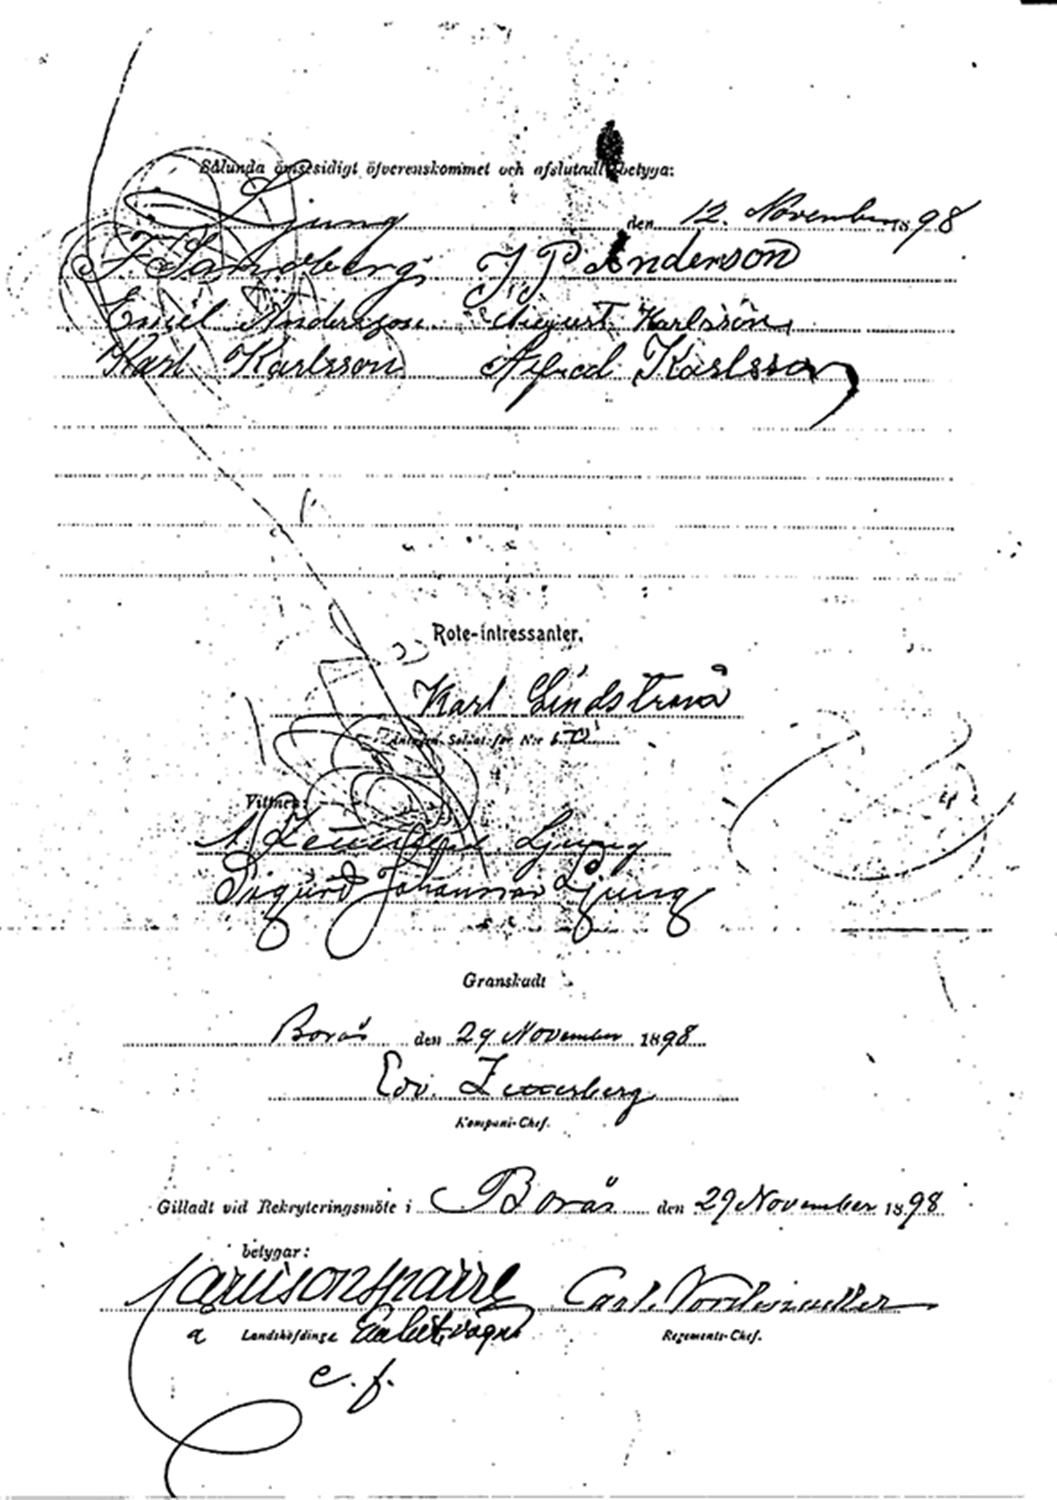 Sålunda ömsesidigt öfverenskommet och afslutadt betyga:
Ljung den 12. November 1898
F Sandberg J P Anderson
Emil Andersson August Karlsson
Karl Karlsson Alfred Karlsson
Rote-intressanter.
Karl Lindström
Antagen Soldat för N:r
Vittnen:
Ljung
Sigurd Johannes Ljung
Granskadt
Borås den 29 November 1898
Edv. Zetterberg
Kompani-Chef.
Gilladt vid Rekryteringsmöte i Borås den 29 November 1898
betygar:
Carl
a Landshöfdinge Embetsvägnar Regements-Chef.
e. f.